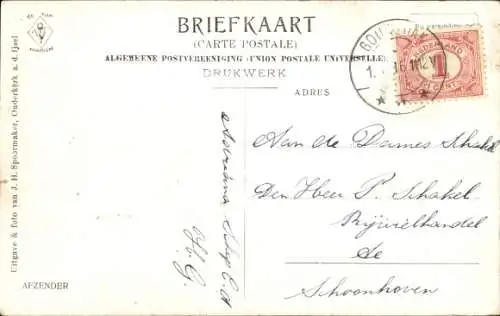 BRIEFKAART
(CARTE POSTALE)
ALGEMEENE POSTVEREENIGING (UNION POSTALE UNIVERSELLE)
DRUKWERK
ADRES
NEDERLAND
1
CENT
Aan de Dames Schakel
Den Heer P. Schakel
Rijwielhandel
te
Schoonhoven
H. G.
AFZENDER
Uitgave & foto van J. H. Spoormaker, Ouderkerk a. d. IJsel